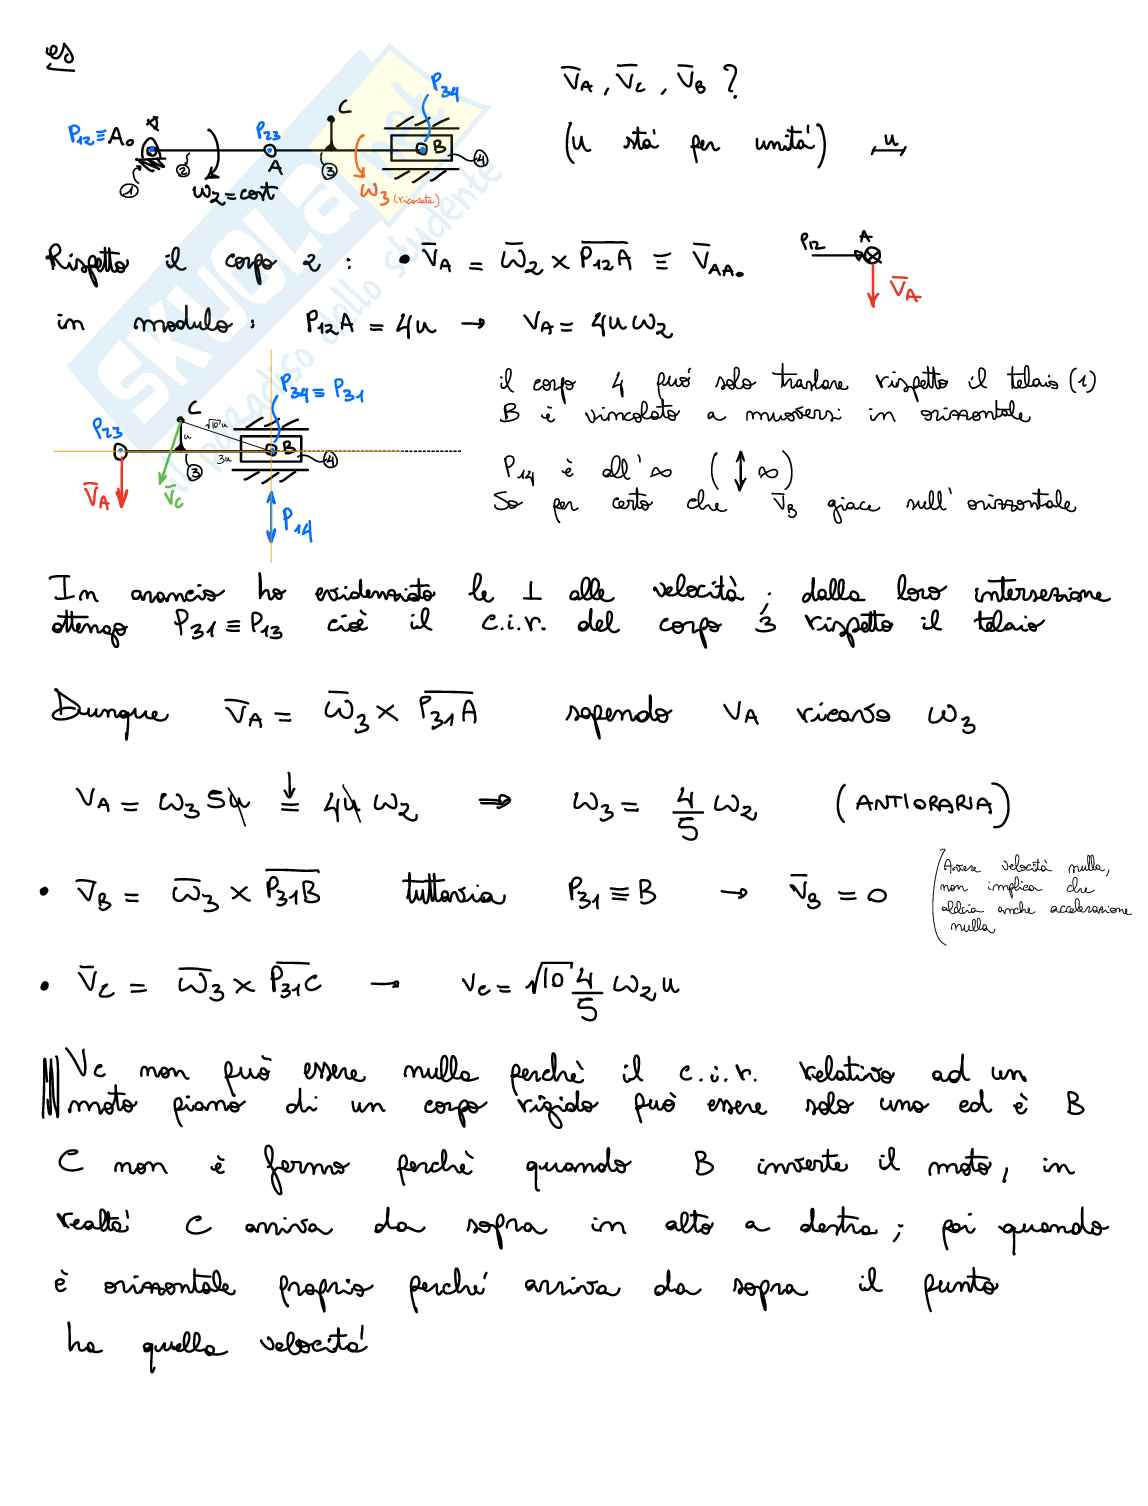 es
V̄A , V̄C , V̄B ?
(u sta' per unita') u
P12 ≡ A0 P23 A C P34 B
1 2 ω2 = cost 3 ω3 (ricavata) 4
Rispetto il corpo 2 : • V̄A = ω̄2 × P12A ≡ V̄AA0
P12 A V̄A
in modulo : P12A = 4u → VA = 4u ω2
il corpo 4 può solo traslare rispetto il telaio (1)
B è vincolato a muoversi in orizzontale
P14 è all' ∞ ( ↕ ∞ )
So per certo che V̄B giace sull' orizzontale
P34 ≡ P31
P23 C √10 u u 3u B 4
V̄A V̄C 3
P14
In arancio ho evidenziato le ⊥ alle velocità ; dalla loro intersezione
ottengo P31 ≡ P13 cioè il c.i.r. del corpo 3 rispetto il telaio
Dunque V̄A = ω̄3 × P31A sapendo VA ricavo ω3
VA = ω3 5u = 4u ω2 ⇒ ω3 = 4/5 ω2 (ANTIORARIA)
• V̄B = ω̄3 × P31B tuttavia P31 ≡ B → V̄B = 0
(Avere velocità nulla,
non implica che
abbia anche accelerazione
nulla
• V̄C = ω̄3 × P31C → VC = √10 4/5 ω2 u
VC non può essere nulla perchè il c.i.r. relativo ad un
moto piano di un corpo rigido può essere solo uno ed è B
C non è fermo perchè quando B inverte il moto, in
realta' C arriva da sopra in alto a destra ; poi quando
è orizzontale proprio perche' arriva da sopra il punto
ha quella velocita'
SKUOLA.net
il paradiso dello studente